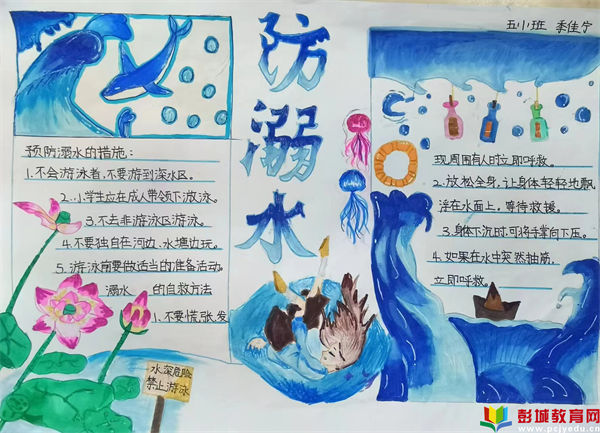 五小班 季佳宁
防溺水
预防溺水的措施：
1.不会游泳者，不要游到深水区。
2.小学生应在成人带领下游泳。
3.不去非游泳区游泳。
4.不要独自在河边、水塘边玩。
5.游泳前要做适当的准备活动。
溺水 的自救方法
1.不要慌张,发
现周围有人时立即呼救。
2.放松全身,让身体轻轻地飘
浮在水面上,等待救援。
3.身体下沉时,可将手掌向下压。
4.如果在水中突然抽筋,
立即呼救。
水深危险
禁止游泳
彭城教育网
www.pcjyedu.cn